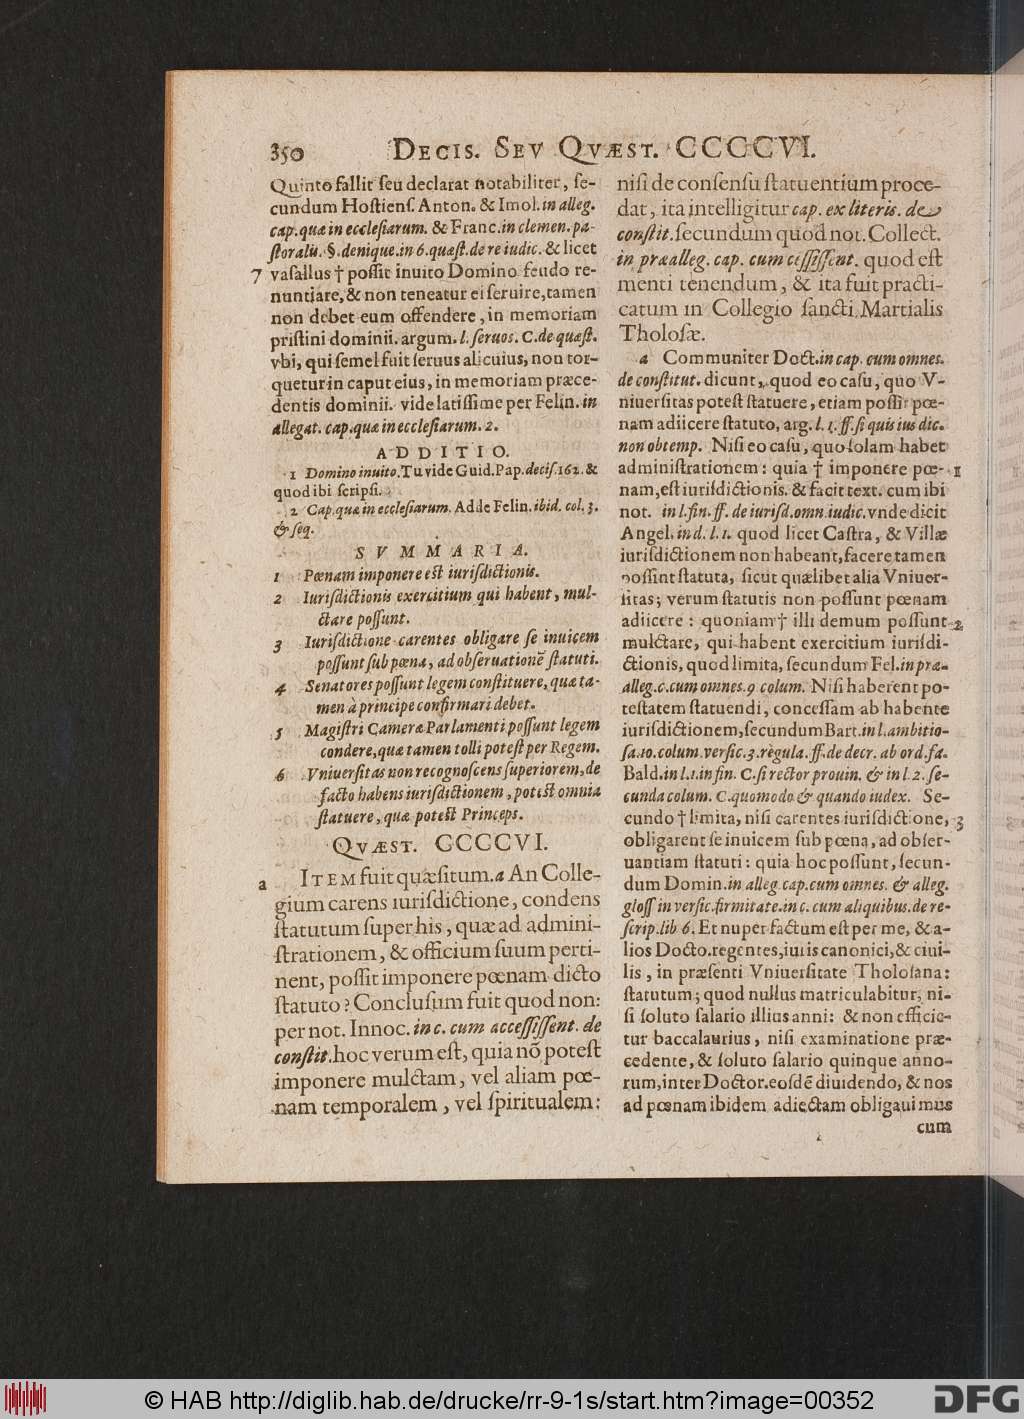 350 DECIS. SEV QVÆST. CCCCVI.
Quinto fallit seu declarat notabiliter, se-
cundum Hostiens. Anton. & Imol. in alleg.
cap. quæ in ecclesiarum. & Franc. in clemen. pa-
storalis. §. denique. in 6. quæst. de re iudic. & licet
7 vasallus † possit inuito Domino feudo re-
nuntiare, & non teneatur ei seruire, tamen
non debet eum offendere, in memoriam
pristini dominii. argum. l. seruos. C. de quæst.
vbi, qui semel fuit seruus alicuius, non tor-
quetur in caput eius, in memoriam præce-
dentis dominii. vide latissime per Felin. in
allegat. cap. quæ in ecclesiarum. 2.
ADDITIO.
1 Domino inuito. Tu vide Guid. Pap. decis. 162. &
quod ibi scripsi.
2 Cap. quæ in ecclesiarum. Adde Felin. ibid. col. 3.
& seq.
SVMMARIA.
1 Pœnam imponere est iurisdictionis.
2 Iurisdictionis exercitium qui habent, mul-
ctare possunt.
3 Iurisdictione carentes obligare se inuicem
possunt sub pœna, ad obseruationē statuti.
4 Senatores possunt legem constituere, quæ ta-
men à principe confirmari debet.
5 Magistri Cameræ Parlamenti possunt legem
condere, quæ tamen tolli potest per Regem.
6 Vniuersitas non recognoscens superiorem, de
facto habens iurisdictionem, potest omnia
statuere, quæ potest Princeps.
QVÆST. CCCCVI.
a ITEM fuit quæsitum. a An Colle-
gium carens iurisdictione, condens
statutum super his, quæ ad admini-
strationem, & officium suum perti-
nent, possit imponere pœnam dicto
statuto? Conclusum fuit quod non:
per not. Innoc. in c. cum accessissent. de
constit. hoc verum est, quia nō potest
imponere mulctam, vel aliam pœ-
nam temporalem, vel spiritualem:
nisi de consensu statuentium proce-
dat, ita intelligitur cap. ex literis. de
constit. secundum quod not. Collect.
in præalleg. cap. cum cessissent. quod est
menti tenendum, & ita fuit practi-
catum in Collegio sancti Martialis
Tholosæ.
a Communiter Doct. in cap. cum omnes.
de constitut. dicunt, quod eo casu, quo V-
niuersitas potest statuere, etiam possit pœ-
nam adiicere statuto, arg. l. 1. ff. si quis ius dic.
non obtemp. Nisi eo casu, quo solam habet
administrationem: quia † imponere pœ- 1
nam, est iurisdictionis. & facit text. cum ibi
not. in l. fin. ff. de iurisd. omn. iudic. vnde dicit
Angel. in d. l. 1. quod licet Castra, & Villæ
iurisdictionem non habeant, facere tamen
possint statuta, sicut quælibet alia Vniuer-
sitas; verum statutis non possunt pœnam
adiicere: quoniam † illi demum possunt 2
mulctare, qui habent exercitium iurisdi-
ctionis, quod limita, secundum Fel. in præ-
alleg. c. cum omnes. 9 colum. Nisi haberent po-
testatem statuendi, concessam ab habente
iurisdictionem, secundum Bart. in l. ambitio-
sa. 10. colum. versic. 3. regula. ff. de decr. ab ord. fa.
Bald. in l. 1. in fin. C. si rector prouin. & in l. 2. se-
cunda colum. C. quomodo & quando iudex. Se-
cundo † limita, nisi carentes iurisdictione, 3
obligarent se inuicem sub pœna, ad obser-
uantiam statuti: quia hoc possunt, secun-
dum Domin. in alleg. cap. cum omnes. & alleg.
gloss in versic. firmitate. in c. cum aliquibus. de re-
scrip. lib 6. Et nuper factum est per me, & a-
lios Docto. regentes, iuris canonici, & ciui-
lis, in præsenti Vniuersitate Tholosana:
statutum; quod nullus matriculabitur, ni-
si soluto salario illius anni: & non efficie-
tur baccalaurius, nisi examinatione præ-
cedente, & soluto salario quinque anno-
rum, inter Doctor. eosdē diuidendo, & nos
ad pœnam ibidem adiectam obligauimus
cum
© HAB http://diglib.hab.de/drucke/rr-9-1s/start.htm?image=00352
DFG